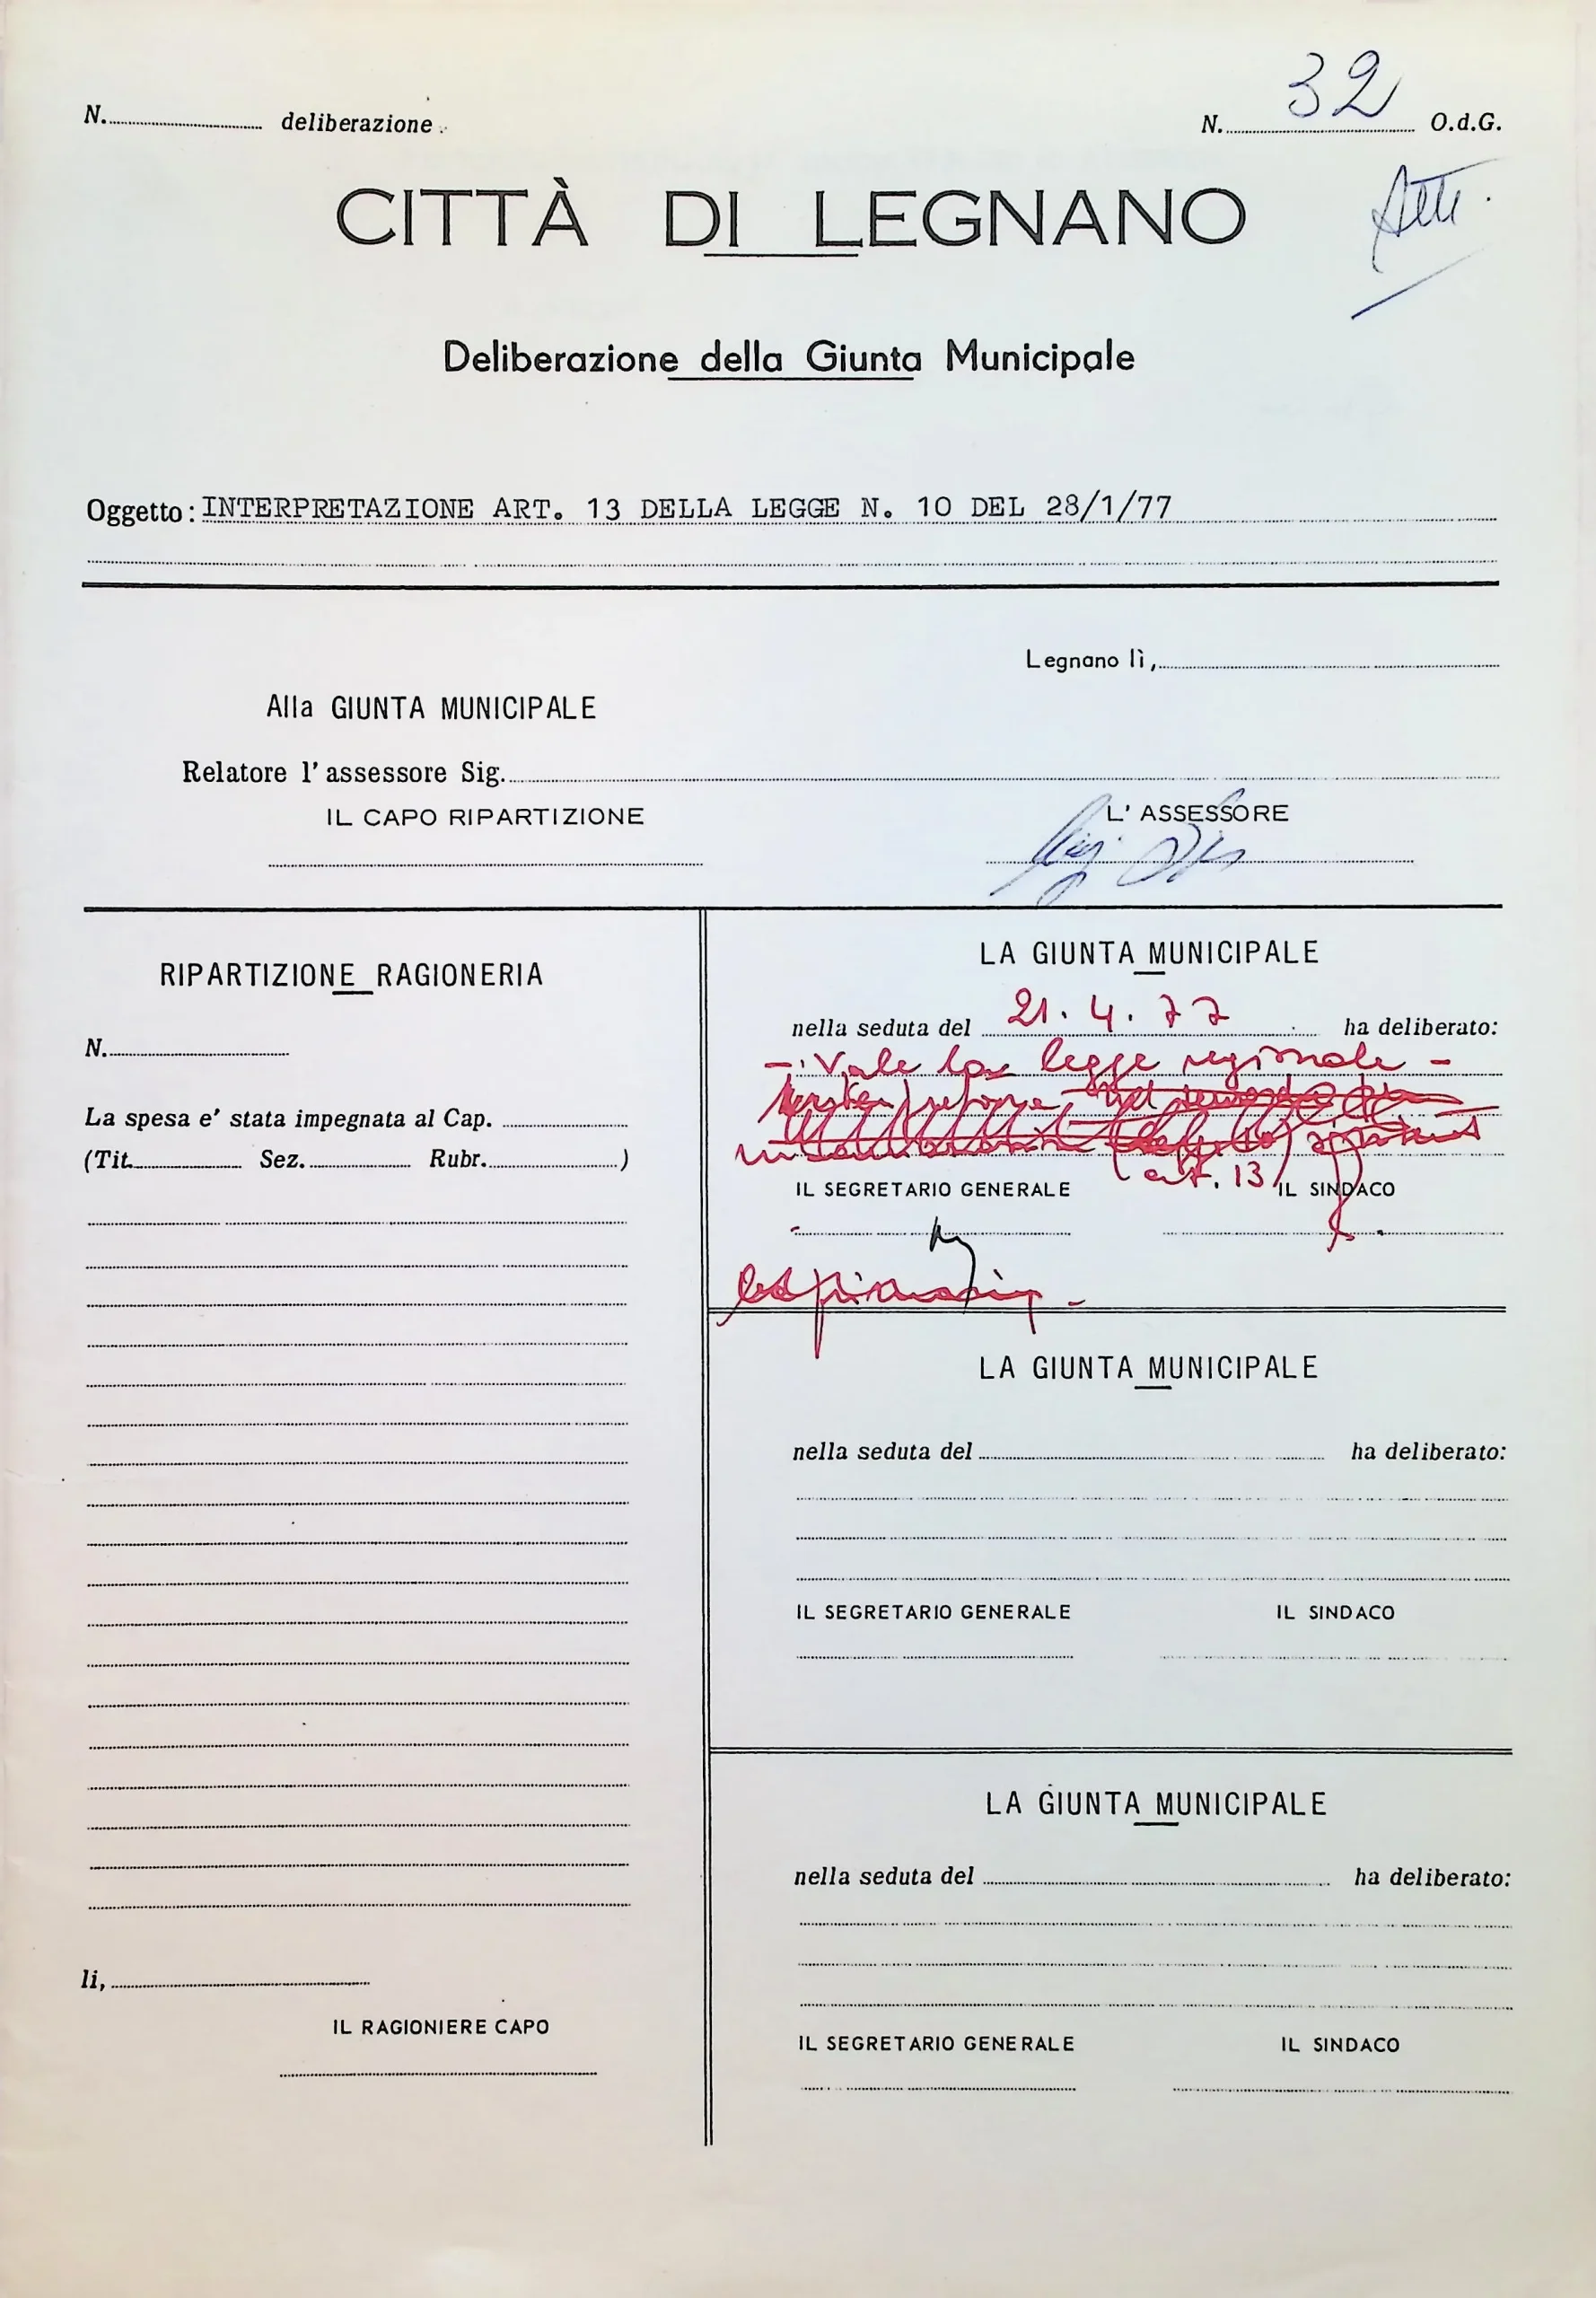 N. deliberazione
N. 32 O.d.G.
Atti.
CITTÀ DI LEGNANO
Deliberazione della Giunta Municipale
Oggetto: INTERPRETAZIONE ART. 13 DELLA LEGGE N. 10 DEL 28/1/77
Legnano lì,
Alla GIUNTA MUNICIPALE
Relatore l'assessore Sig.
IL CAPO RIPARTIZIONE
L'ASSESSORE
RIPARTIZIONE RAGIONERIA
N.
La spesa e' stata impegnata al Cap.
(Tit. Sez. Rubr. )
li,
IL RAGIONIERE CAPO
LA GIUNTA MUNICIPALE
nella seduta del 21.4.77 ha deliberato:
- Vale la legge regionale -
(art. 13)
IL SEGRETARIO GENERALE IL SINDACO
LA GIUNTA MUNICIPALE
nella seduta del ha deliberato:
IL SEGRETARIO GENERALE IL SINDACO
LA GIUNTA MUNICIPALE
nella seduta del ha deliberato:
IL SEGRETARIO GENERALE IL SINDACO